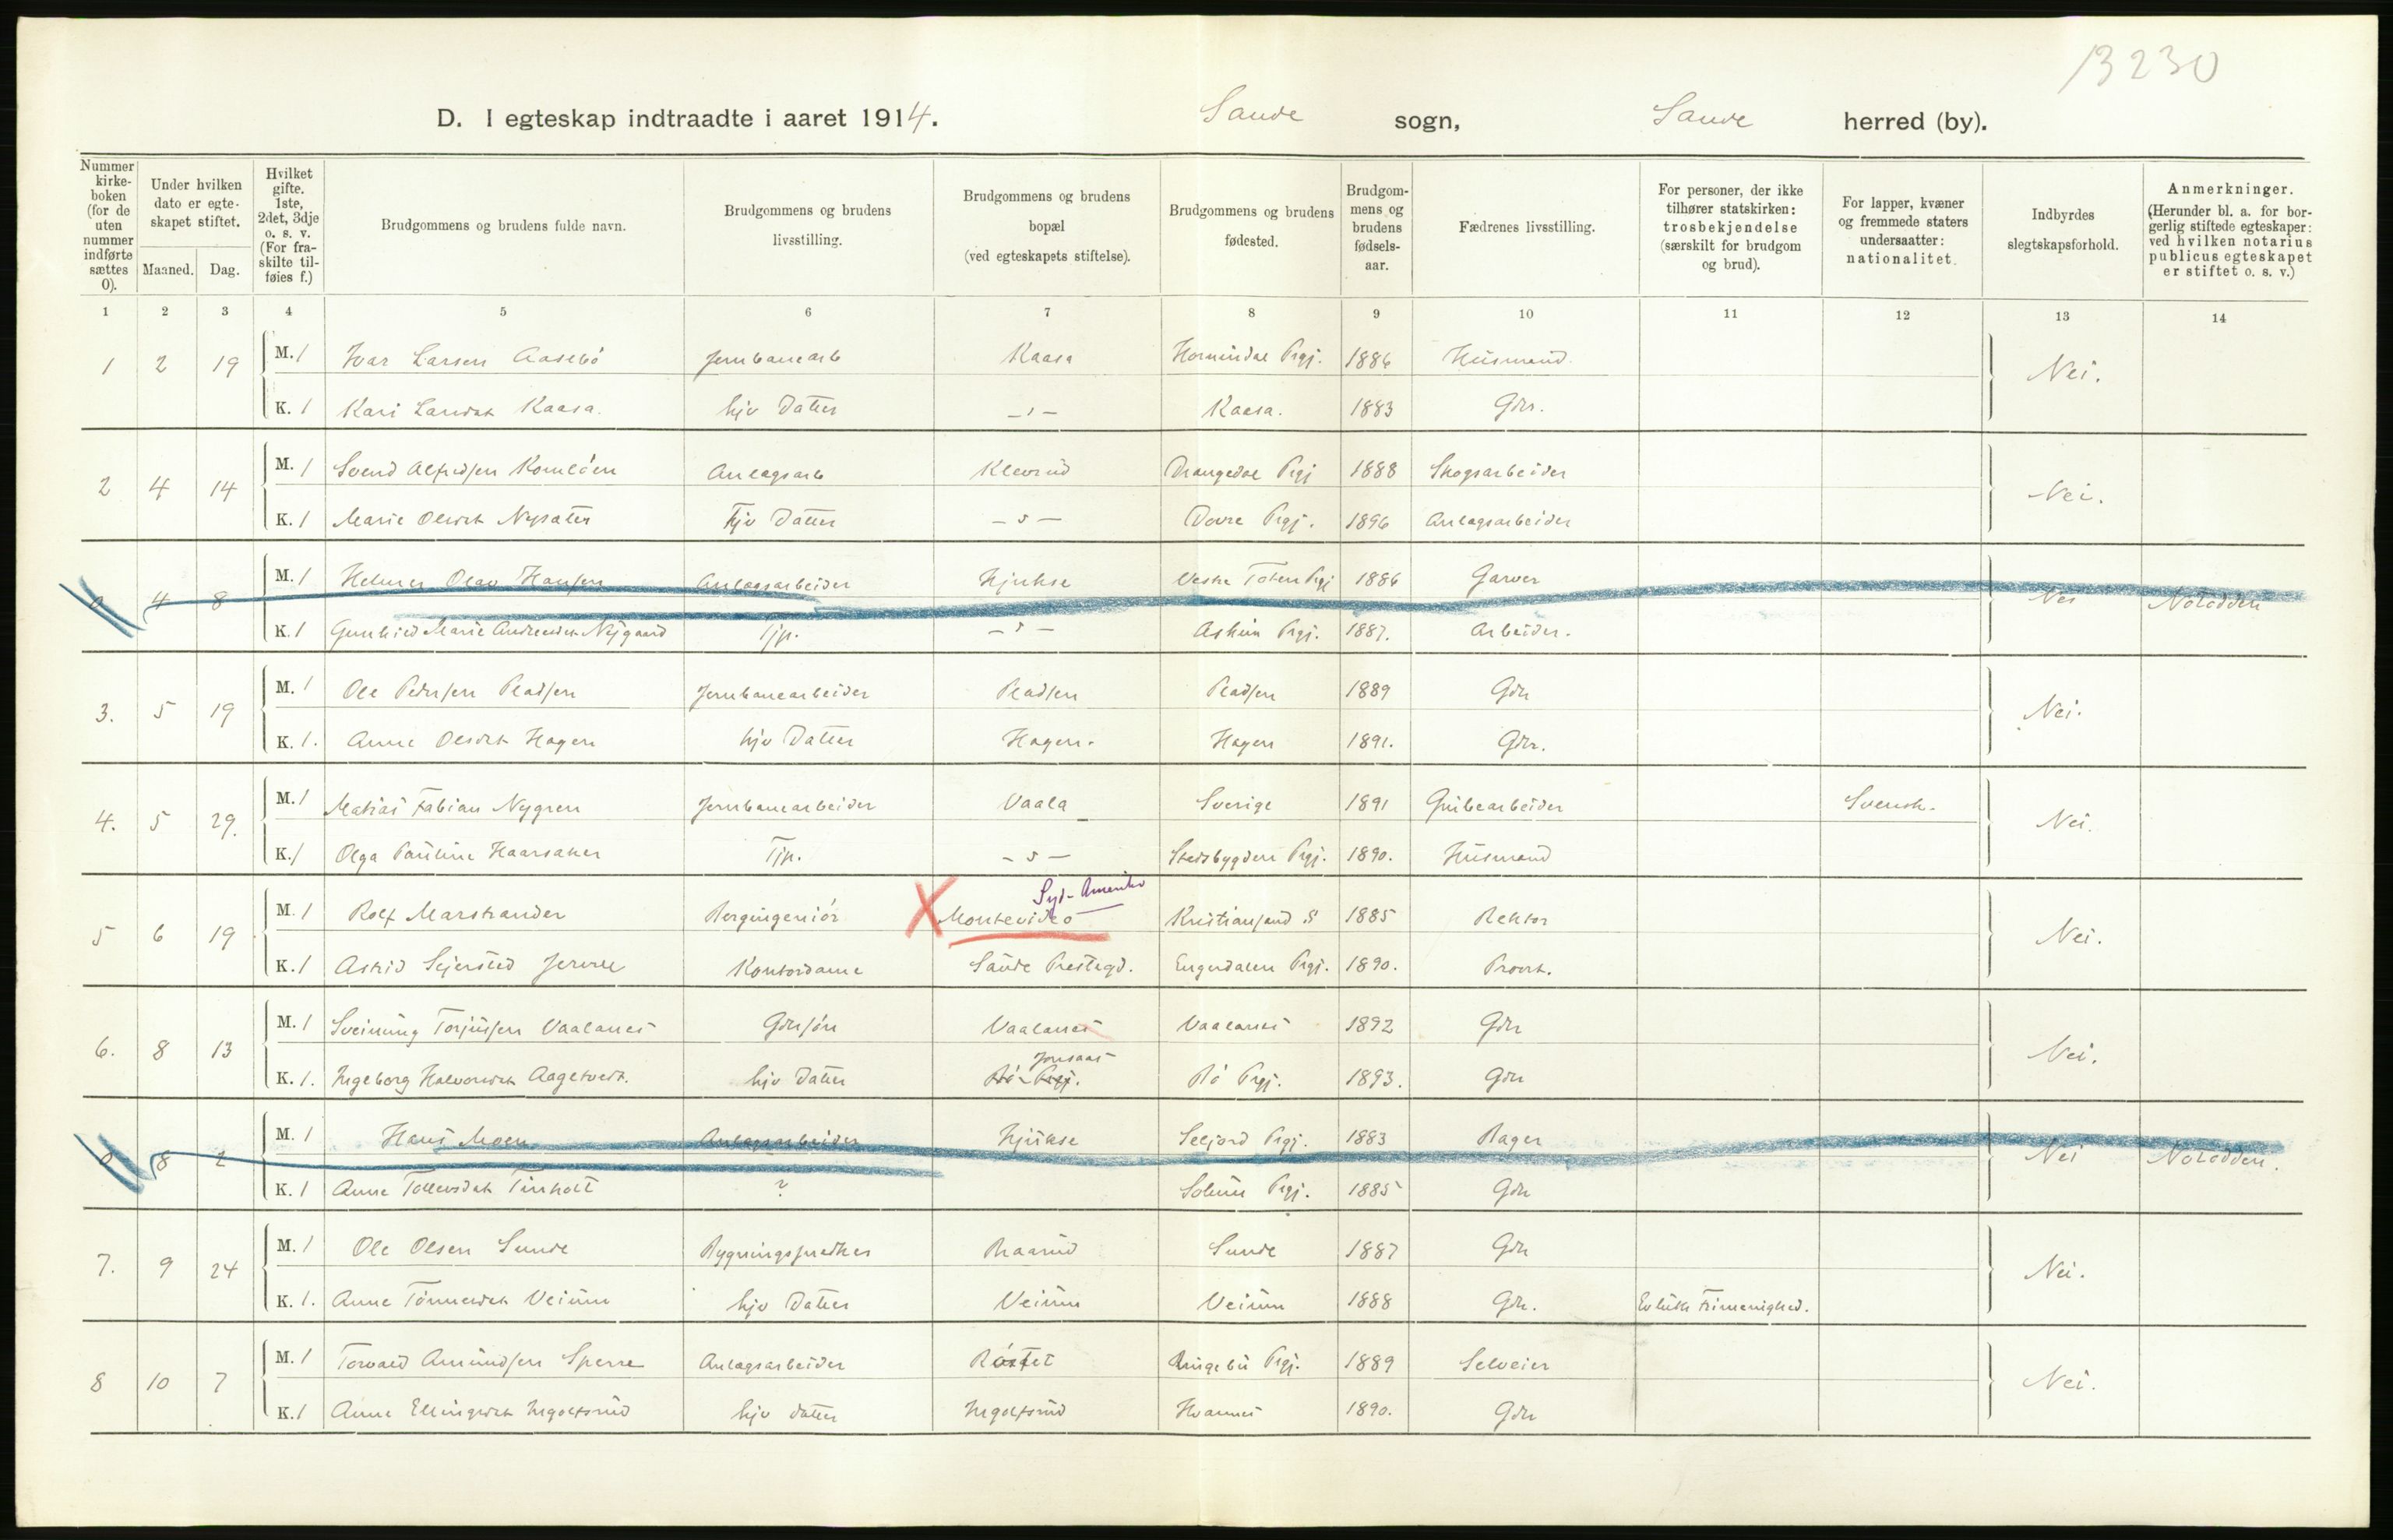 13230
D. I egteskap indtraadte i aaret 1914. Saude sogn, Saude herred (by).
Nummer kirke-boken (for de uten nummer indførte sættes 0).
Under hvilken dato er egte-skapet stiftet.
Maaned. Dag.
Hvilket gifte. 1ste, 2det, 3dje o. s. v. (For fra-skilte til-føies f.)
Brudgommens og brudens fulde navn.
Brudgommens og brudens livsstilling.
Brudgommens og brudens bopæl (ved egteskapets stiftelse).
Brudgommens og brudens fødested.
Brudgom-mens og brudens fødsels-aar.
Fædrenes livsstilling.
For personer, der ikke tilhører statskirken: trosbekjendelse (særskilt for brudgom og brud).
For lapper, kvæner og fremmede staters undersaatter: nationalitet.
Indbyrdes slegtskapsforhold.
Anmerkninger. (Herunder bl. a. for bor-gerlig stiftede egteskaper: ved hvilken notarius publicus egteskapet er stiftet o. s. v.)
1 2 3 4 5 6 7 8 9 10 11 12 13 14
1 2 19 M. 1 Ivar Larsen Aasebö Jernbanearb Kaasa Hornindal Prgj. 1886 Husmand. Nei.
K. 1 Kari Larsdat Kaasa. hjv Datter -"- Kaasa. 1883 Gdr.
2 4 14 M. 1 Svend Alfredsen Komlöen Anlagsarb Klevrud Drangedal Prgj 1888 Skogsarbeider Nei.
K. 1 Marie Olsdat Nysæter hjv Datter -"- Dovre Prgj. 1896 Anlagsarbeider
0 4 8 M. 1 Helmer Olav Hansen Anlagsarbeider Hjukse Vestre Toten Prgj 1886 Garver Nei Notodden
K. 1 Gunhild Marie Andreasdat Nygaard Tjp. -"- Askim Prgj. 1887. Arbeider.
3. 5 19 M. 1 Ole Pedersen Pladsen Jernbanearbeider Pladsen Pladsen 1889 Gdr Nei.
K. 1. Anne Olsdat Hagen hjv Datter Hagen. Hagen 1891. Gdr.
4. 5 29. M. 1 Matias Fabian Nygren Jernbanearbeider Vaala Sverige 1891 Grubearbeider Svensk. Nei.
K. 1 Olga Pauline Haarsaker Tjp. -"- Stadsbygden Prgj. 1890. Husmand
Syd-Amerika
5 6 19 M. 1 Rolf Marstrander Bergingeniör X Montevideo Kristiansand S 1885 Rektor Nei.
K. 1 Astrid Sejersted Jervell Kontordame Saude Prestegd. Engerdalen Prgj. 1890. Provst.
6. 8 13 M. 1 Sveinung Torjussen Vaalanes Gdrsön Vaalanes Vaalanes 1892 Gdr Nei.
Jonsaas
K. 1. Ingeborg Halvorsdat Aagetveit. hjv Datter Bö Prgj. Bö Prgj. 1893. Gdr
0 8 2 M. 1 Hans Moen Anlagsarbeider Hjukse Seljord Prgj. 1883 Bager Nei Notodden.
K. 1 Anne Tollevsdat Tinholt ? Solum Prgj. 1885 Gdr
7. 9 24 M. 1 Ole Olsen Sunde Bygningssnedker Braarud Sunde 1887 Gdr Nei.
K. 1. Anne Tönnesdat Veium hjv Datter Veium Veium 1888 Gdr. Ev luth Frimenighed.
8 10 7 M. 1 Torvald Amundsen Sperre Anlagsarbeider Röstet Ringebu Prgj. 1889 Selveier Nei.
K. 1 Anne Ellingsdat Ingolfsrud hjv datter Ingolfsrud Hvamnes 1890. Gdr